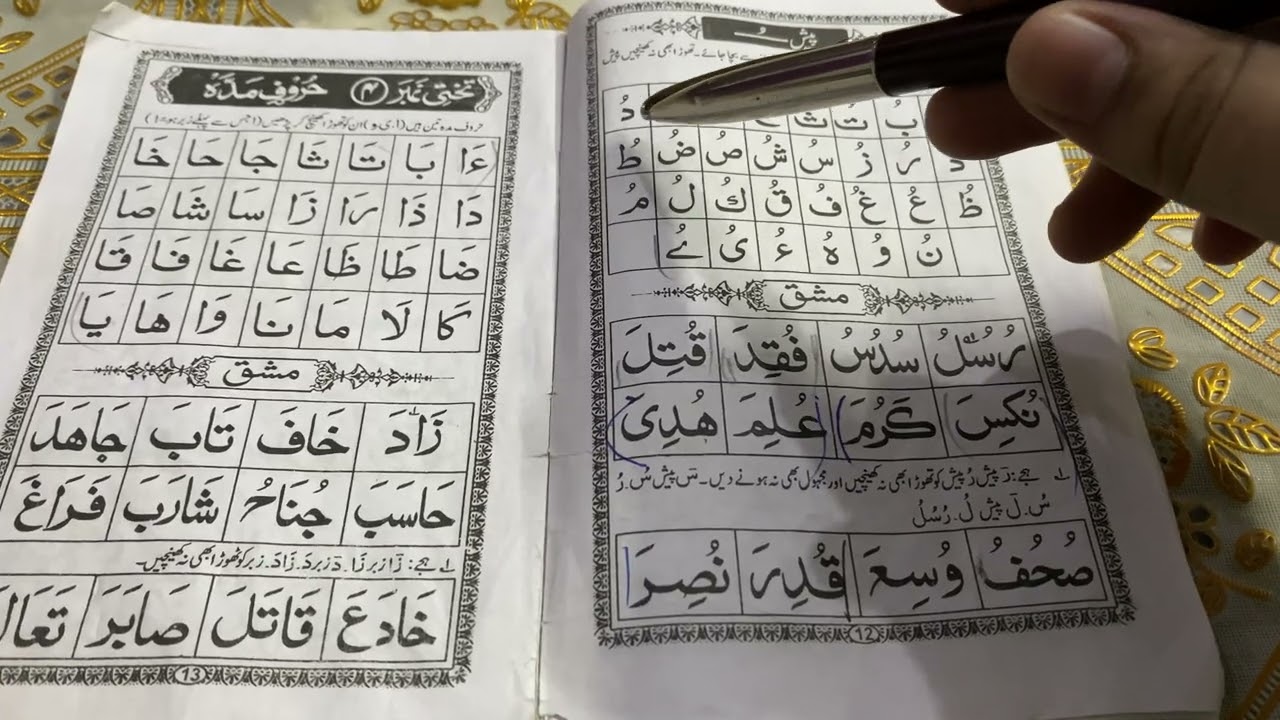 پیش ـُ
سے بچا جائے۔ تھوڑا بھی نہ کھینچیں
بُ تُ ثُ دُ
رُ زُ سُ شُ صُ ضُ طُ
ظُ عُ غُ فُ قُ كُ لُ مُ
نُ وُ هُ ءُ یُ ےُ
مشق
رُسُلُ سُدُسُ فُقِدَ قُتِلَ
نُكِسَ كَرُمَ عُلِمَ هُدِیَ
لے ہجے: رَ پیش رُ پیش کو تھوڑا بھی نہ کھینچیں اور مجہول بھی نہ ہونے دیں۔ سَ پیش سُ۔ رُ
سُ۔ لَ پیش لُ۔ رُسُلُ
صُحُفُ وُسِعَ قُدِرَ نُصِرَ
12
تختی نمبر ۴ حُرُوفِ مَدَّہ
حروف مدہ تین ہیں (ا، ی، و) ان کو تھوڑا کھینچ کر پڑھیں (ا جس سے پہلے زبر ہو = ا)
ءَا بَا تَا ثَا جَا حَا خَا
دَا ذَا رَا زَا سَا شَا صَا
ضَا طَا ظَا عَا غَا فَا قَا
كَا لَا مَا نَا وَا هَا یَا
مشق
زَادَ خَافَ تَابَ جَاهَدَ
حَاسَبَ جُنَاحُ شَارَبَ فَرَاغَ
لے ہجے: زَا زبر زَا۔ دَ زبر دَ۔ زَادَ۔ زبر کو تھوڑا بھی نہ کھینچیں۔
خَادَعَ قَاتَلَ صَابَرَ تَعَالَ
13